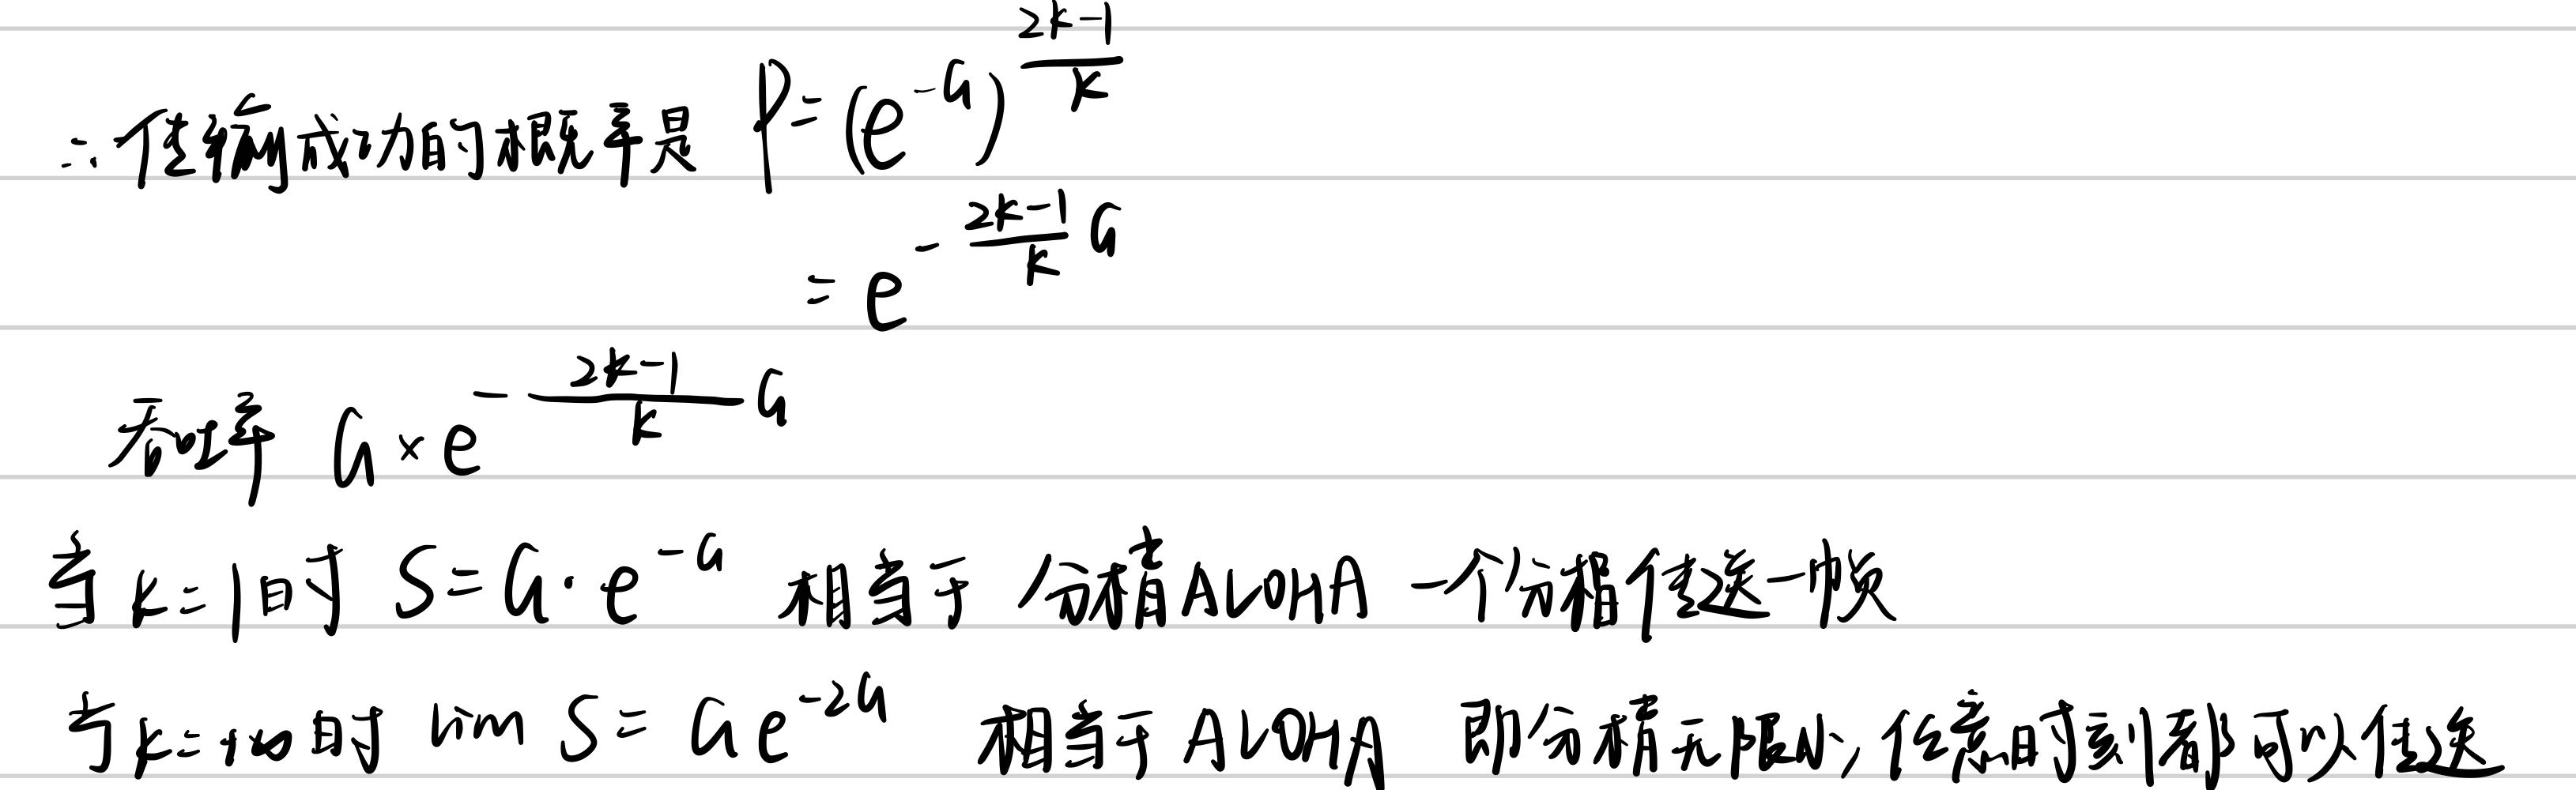 ∴传输成功的概率是 P=(e^{-G})^{\frac{2k-1}{k}}
=e^{-\frac{2k-1}{k}G}
吞吐率 G×e^{-\frac{2k-1}{k}G}
当k=1时 S=G·e^{-G} 相当于 分槽ALOHA 一个分槽传送一帧
当k=+∞时 lim S=Ge^{-2G} 相当于ALOHA 即分槽无限小,任意时刻都可以传送